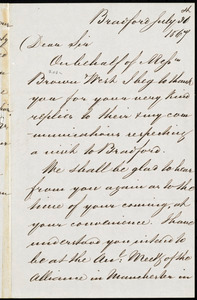 Bradford July 30th
1867
Dear Sir
On behalf of Messrs
Brown West I beg to thank
you for your very kind
replies to their & my com-
munications respecting
a visit to Bradford.
We shall be glad to hear
from you again as to the
time of your coming, at
your convenience. I have
understand you intend to
be at the Anl. Meetg of the
Alliance in Manchester in